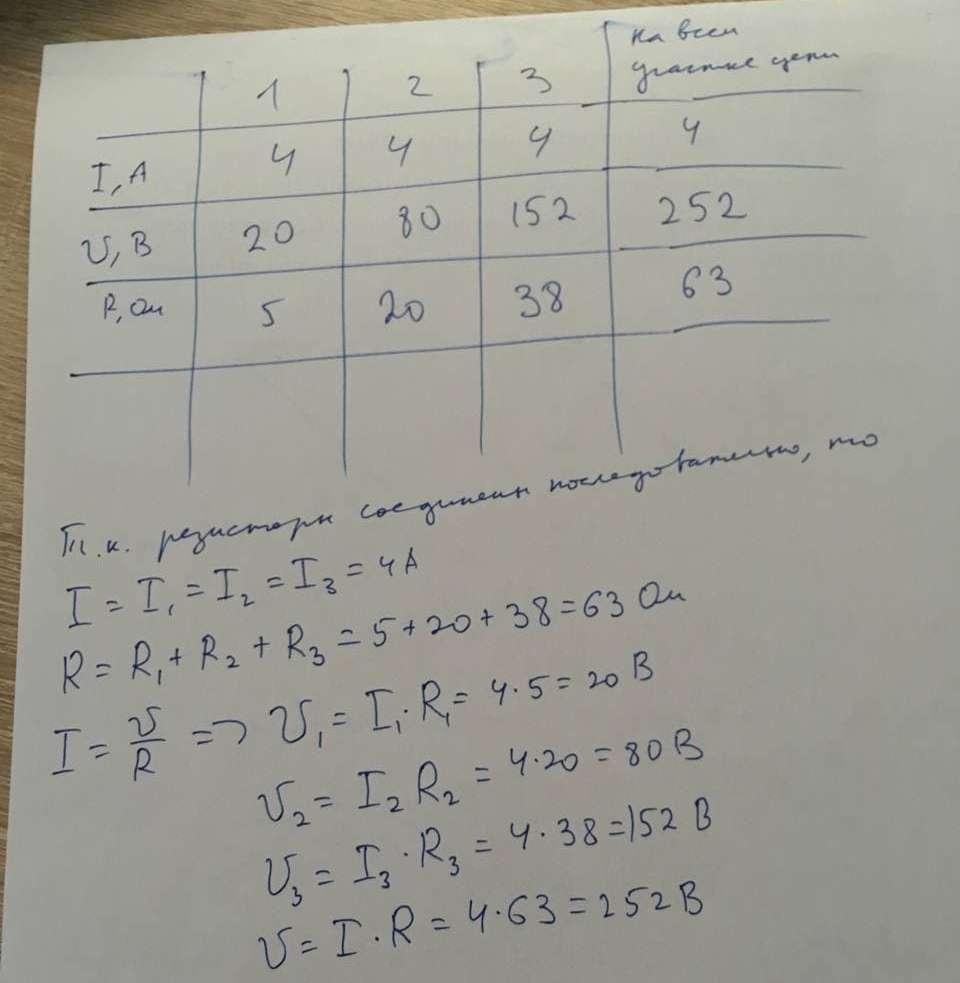 1 2 3 на всем участке цепи
I, A 4 4 4 4
U, B 20 80 152 252
R, Ом 5 20 38 63
Т.к. резисторы соединены последовательно, то
I = I₁ = I₂ = I₃ = 4 A
R = R₁ + R₂ + R₃ = 5 + 20 + 38 = 63 Ом
I = U/R => U₁ = I₁ · R₁ = 4 · 5 = 20 B
U₂ = I₂ R₂ = 4 · 20 = 80 B
U₃ = I₃ · R₃ = 4 · 38 = 152 B
U = I · R = 4 · 63 = 252 B